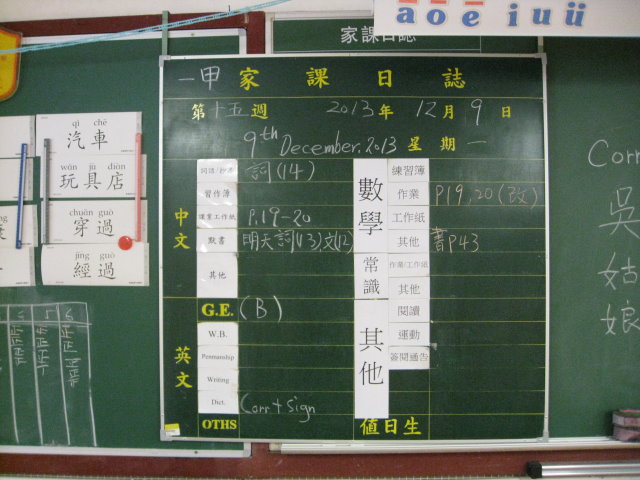 a o e i u ü
家課日誌
一甲家課日誌
第十五週 2013年12月9日
9th December, 2013 星期一
中文
詞(14)
習作簿
課業工作紙 P.19-20
默書 明天詞(13)文(12)
其他
G.E. (B)
英文
W.B.
Penmanship
Writing
Dict. Corr + Sign
OTHS
數學
練習簿
作業 P19,20(改)
工作紙
其他 書P43
常識
作業/工作紙
其他
其他
閱讀
運動
簽閱通告
值日生
qì chē
汽車
wán jù diàn
玩具店
chuān guò
穿過
jīng guò
經過
4 5 6
Corr
吳姑娘